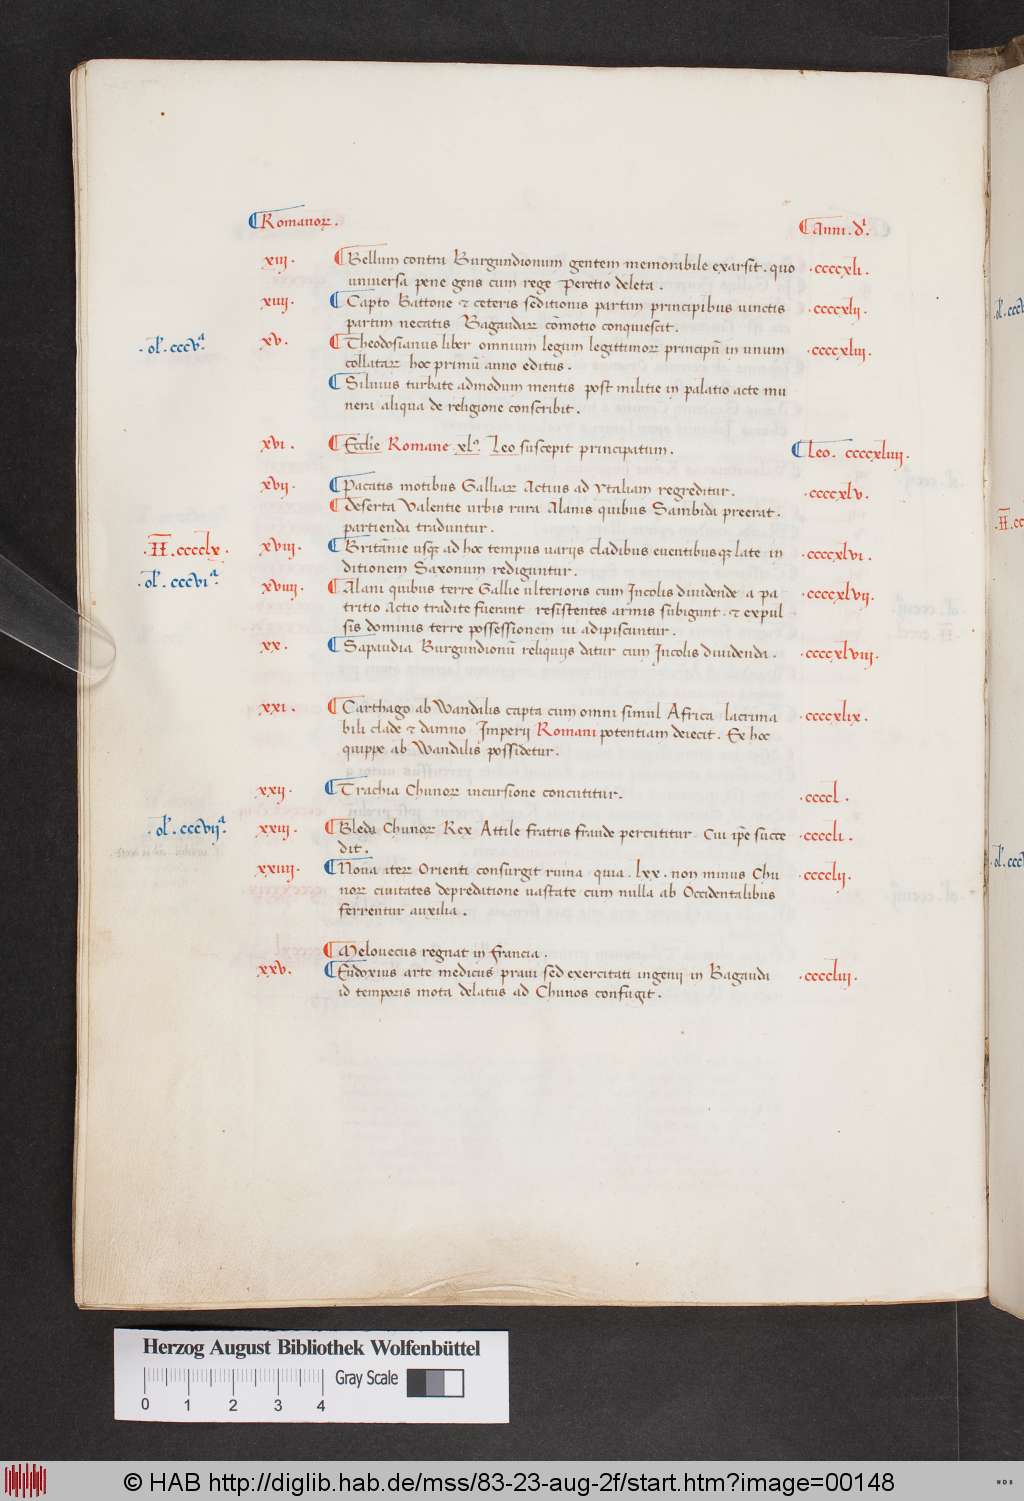 Romanoꝝ. Anni. dı̃.
xiij. Bellum contra Burgundionum gentem memorabile exarsit. quo .ccccxli.
uniuersa pene gens cum rege Peretio deleta.
xiiij. Capto Battone ⁊ ceteris seditionis partim principibus uinctis .ccccxlij.
partim necatis Bagaudaꝝ cōmotio conquiescit.
.ol̃. cccvᵃ. xv. Theodosianus liber omnium legum legittimoꝝ principũ in unum .ccccxliij.
collataꝝ hoc primũ anno editus.
Siluius turbate admodum mentis post militie in palatio acte mu
nera aliqua de religione conscribit.
xvi. Ecclie Romane xlꝰ. Leo suscepit principatum. Leo. ccccxliiij.
xvij. Pacatis motibus Galliaꝝ Actius ad Ytaliam regreditur. .ccccxlv.
deserta Valentie urbis rura Alanis quibus Sambida preerat.
partienda traduntur.
.II̅. cccclx. xviij. Britãnie usqꝫ ad hoc tempus uarijs cladibus euentibusqꝫ late in .ccccxlvi.
.ol̃. cccviᵃ. ditionem Saxonum rediguntur.
xviiij. Alani quibus terre Gallie ulterioris cum Incolis diuidende a pa .ccccxlvij.
tritio Actio tradite fuerunt resistentes armis subigunt. ⁊ expul
sis dominis terre possessionem ui adipiscuntur.
xx. Sapaudia Burgundionũ reliquijs datur cum Incolis diuidenda. .ccccxlviij.
xxi. Carthago ab Wandalis capta cum omni simul Africa lacrima .ccccxlix.
bili clade ⁊ damno Imperij Romani potentiam deiecit. Ex hoc
quippe ab Wandalis possidetur.
xxij. Trachia Chunoꝝ incursione concutitur. .ccccl.
.ol̃. cccvijᵃ. xxiij. Bleda Chunoꝝ Rex Attile fratris fraude percutitur Cui ip̃e succe .ccccli.
dit.
xxiiij. Noua iteꝝ Orienti consurgit ruina quia .lxx. non minus Chu .cccclij.
noꝝ ciuitates depredatione uastate cum nulla ab Occidentalibus
ferrentur auxilia.
Melouecus regnat in francia.
xxv. Eudoxius arte medicus praui sed exercitati ingenij in Bagaudi .ccccliij.
id temporis mota delatus ad Chunos confugit.
Herzog August Bibliothek Wolfenbüttel
Gray Scale
0 1 2 3 4
© HAB http://diglib.hab.de/mss/83-23-aug-2f/start.htm?image=00148